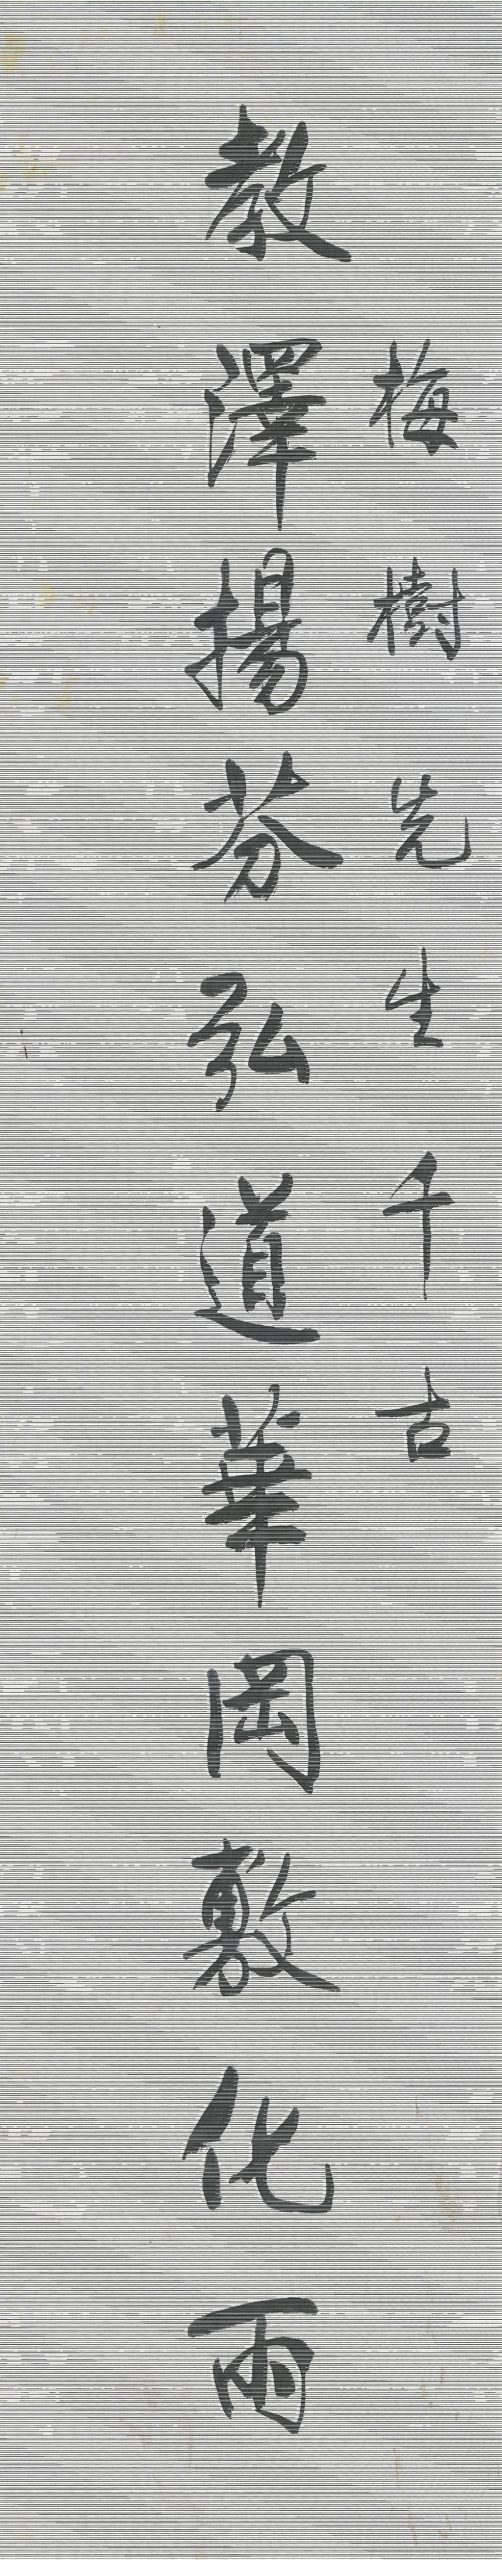 梅樹先生千古
教澤揚芬弘道華岡敷化雨